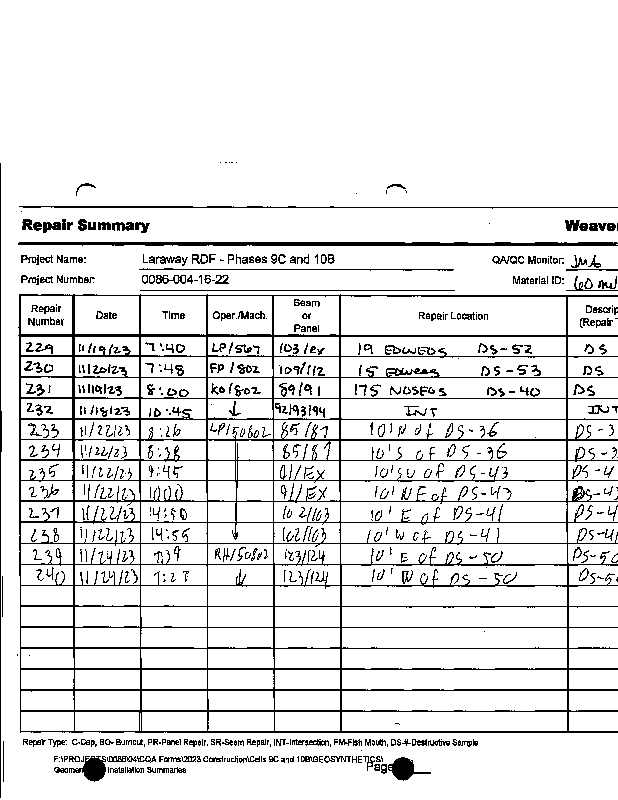 Repair Summary Weaver
Project Name: Laraway RDF - Phases 9C and 10B QA/QC Monitor: JMG
Project Number: 0086-004-16-22 Material ID: 60 mil
Repair Number Date Time Oper./Mach. Seam or Panel Repair Location Descrip (Repair T
229 11/19/23 7:40 LP/567 103/ex 19 EDWEDS DS-52 DS
230 11/20/23 7:48 FP/802 109/112 15 DS-53 DS
231 11/19/23 8:00 KO/802 89/91 175 NOSEGS DS-40 DS
232 11/18/23 10:45 ↓ 92/93/94 INT INT
233 11/22/23 8:26 LP/50802 85/87 10' N of DS-36 DS-3
234 11/22/23 8:38 85/87 10' S OF DS-36 DS-3
235 11/22/23 9:45 91/EX 10' SW OF DS-43 DS-4
236 11/22/23 10:00 91/EX 10' NE of DS-43 DS-43
237 11/22/23 14:50 102/103 10' E of DS-41 DS-4
238 11/22/23 14:55 ↓ 102/103 10' W of DS-41 DS-41
239 11/24/23 RH/50802 123/124 10' E OF DS-50 DS-50
240 11/24/23 7:27 ↓ 123/124 10' W OF DS-50 DS-5
Repair Type: C-Cap, BO- Burnout, PR-Panel Repair, SR-Seam Repair, INT-Intersection, FM-Fish Mouth, DS-#-Destructive Sample
F:\PROJECTS\0086\04\CQA Forms\2023 Construction\Cells 9C and 10B\GEOSYNTHETICS\
Geomem Installation Summaries Page